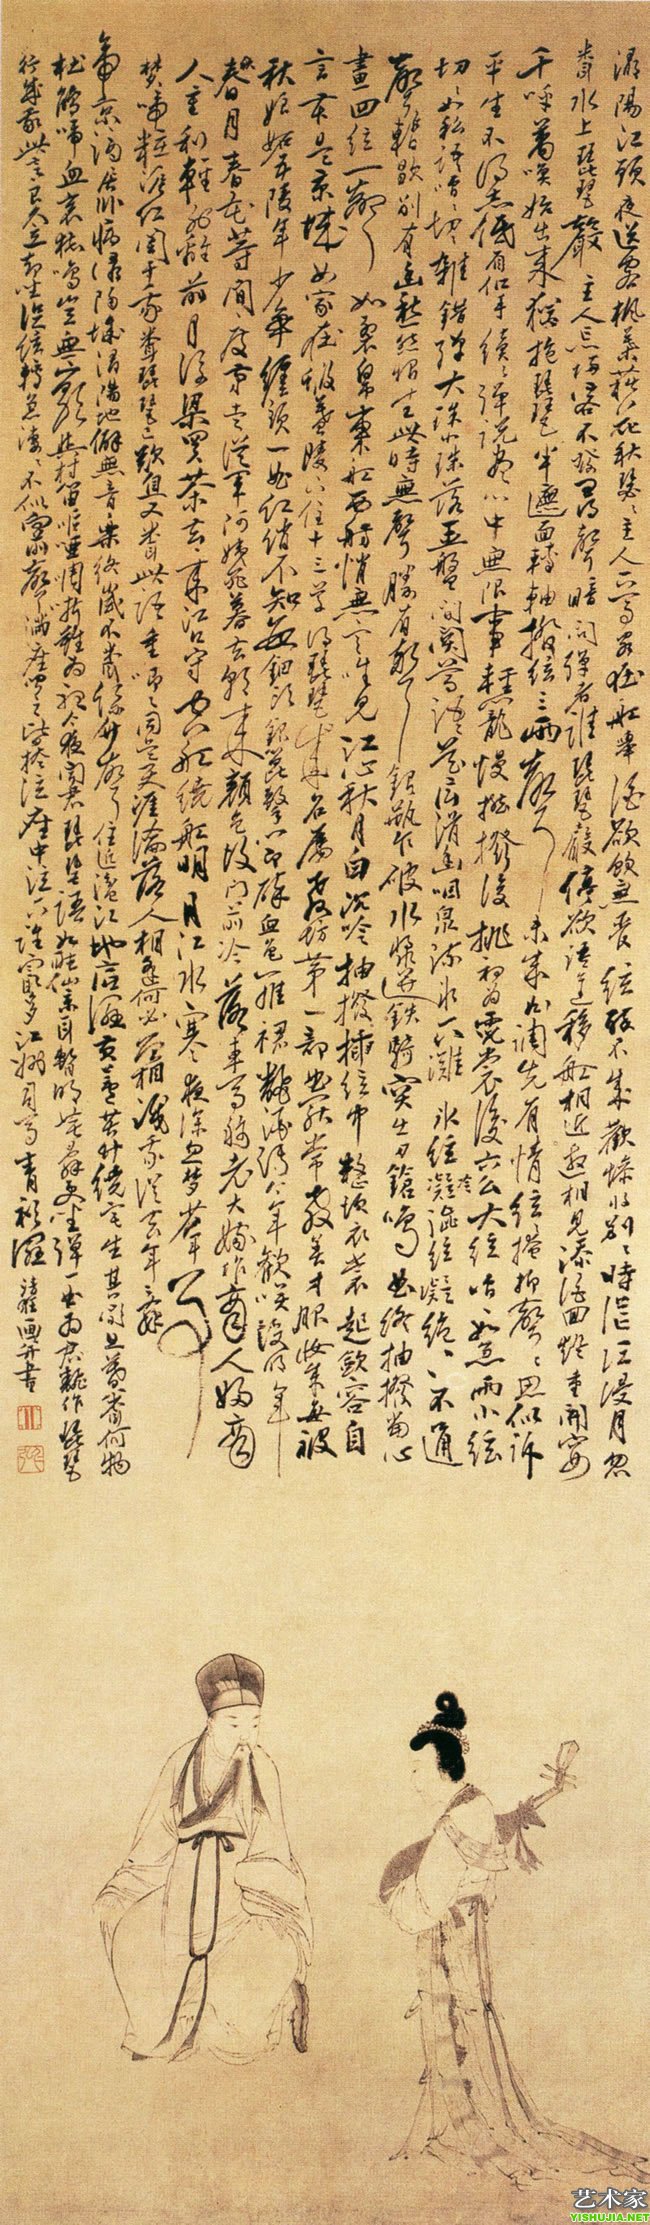 潯陽江頭夜送客楓葉荻花秋瑟々主人下馬客在舡舉酒欲飲無管絃醉不成歡慘將別々時茫々江浸月忽
聞水上琵琶聲主人忘歸客不發尋聲暗問彈者誰琵琶聲停欲語遲移舡相近邀相見添酒回燈重開宴
千呼萬喚始出來猶抱琵琶半遮面轉軸撥絃三兩聲未成曲調先有情絃々掩抑聲々思似訴
平生不得志低眉信手續々彈說盡心中無限事輕攏慢撚撥復挑初為霓裳後六么大絃嘈々如急雨小絃
切々如私語嘈々切々雜錯彈大珠小珠落玉盤間關鶯語花底滑幽咽泉流水下灘氷絃冷澁絃凝絕々不通
聲暫歇別有幽愁暗恨生此時無聲勝有聲銀瓶乍破水漿迸鐵騎突出刀鎗鳴曲終抽撥當心
畫四絃一聲如裂帛東舡西舫悄無言唯見江心秋月白沉吟抽撥插絃中整頓衣裳起斂容自
言本是京城女家在蝦蟇陵下住十三學得琵琶成名屬教坊第一部曲罷常教善才服妝成每被
秋娘妬五陵年少爭纏頭一曲紅綃不知數鈿頭銀篦擊節碎血色羅裙翻酒污今年歡笑復明年
秋月春花等閒度弟走從軍阿姨死暮去朝來顏色故門前冷落車馬稀老大嫁作商人婦商
人重利輕別離前月浮梁買茶去々來江口守空舡繞舡明月江水寒夜深忽夢少年事
夢啼粧淚紅闌干我聞琵琶已歎息又聞此語重唧々同是天涯淪落人相逢何必曾相識我從去年辭
帝京謫居臥病潯陽城潯陽地僻無音樂終歲不聞絲竹聲住近湓江地低濕黃蘆苦竹繞宅生其間旦暮聞何物
杜鵑啼血哀猿鳴豈無山歌與村笛嘔啞啁哳難為聽今夜聞君琵琶語如聽仙樂耳暫明莫辭更坐彈一曲為君翻作琵琶
行感我此言良久立却坐促絃絃轉急淒々不似向前聲滿座聞之皆掩泣座中泣下誰最多江州司馬青衫濕 清狂畫并書
艺术家
YISHUJIA.NET